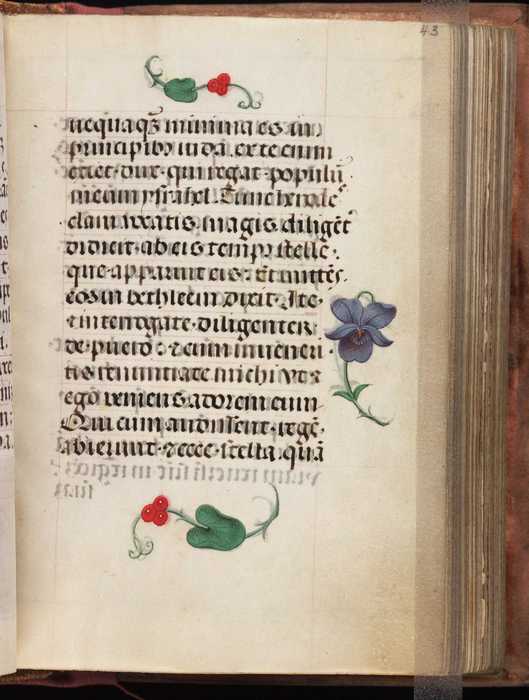 43
nequaqȝ minima es in
principibȝ iuda. ex te enim
exiet dux qui regat populū
meum ysrahel. Tunc herodeˢ
clam vocatis magis diligēt
didicit ab eis tempꝰ stelle.
que apparuit eis: Et mittēs
eos in bethleem dixit. Ite.
⁊ interrogate diligenter
de puero: ⁊ cum inueneri
tis renuntiate michi vt ⁊
ego veniens adorem eum.
Qui cum audissent regē.
abierunt. ⁊ ecce stella. quā